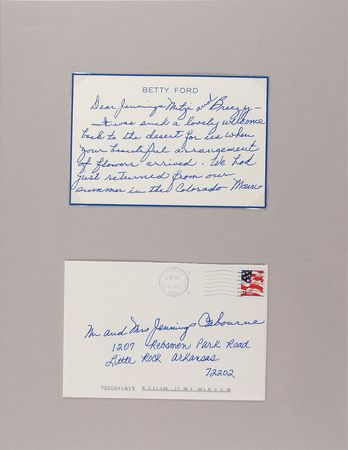 BETTY FORD
Dear Jennings Mitzi and Breezy –
It was such a lovely welcome
back to the desert for us when
your beautiful arrangement
of flowers arrived. We had
just returned from our
summer in the Colorado
Mr and Mrs Jennings Osbourne
1207 Rebsmon Park Road
Little Rock Arkansas
72202
72202+1819